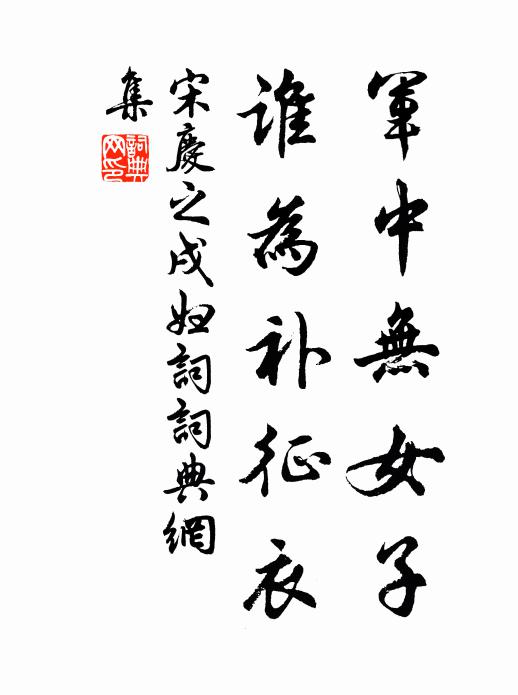 軍中無女子
誰為补征衣
宋慶之戍妇詞詞典網
集
詞典
网印